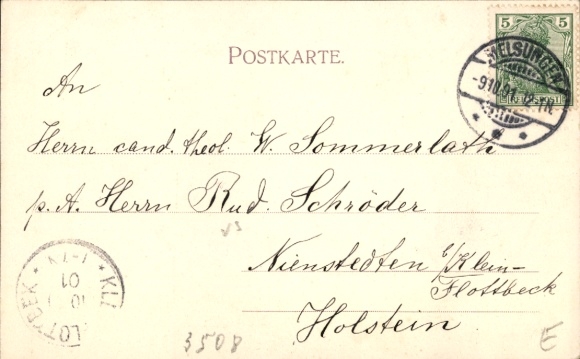 5 5
POSTKARTE.
MELSUNGEN
2-3N.
An
Herrn cand. theol. W. Sommerlath
p. A. Herrn Rud. Schröder
Nienstedten b/Klein-
Flottbeck
Holstein
01
3508
E